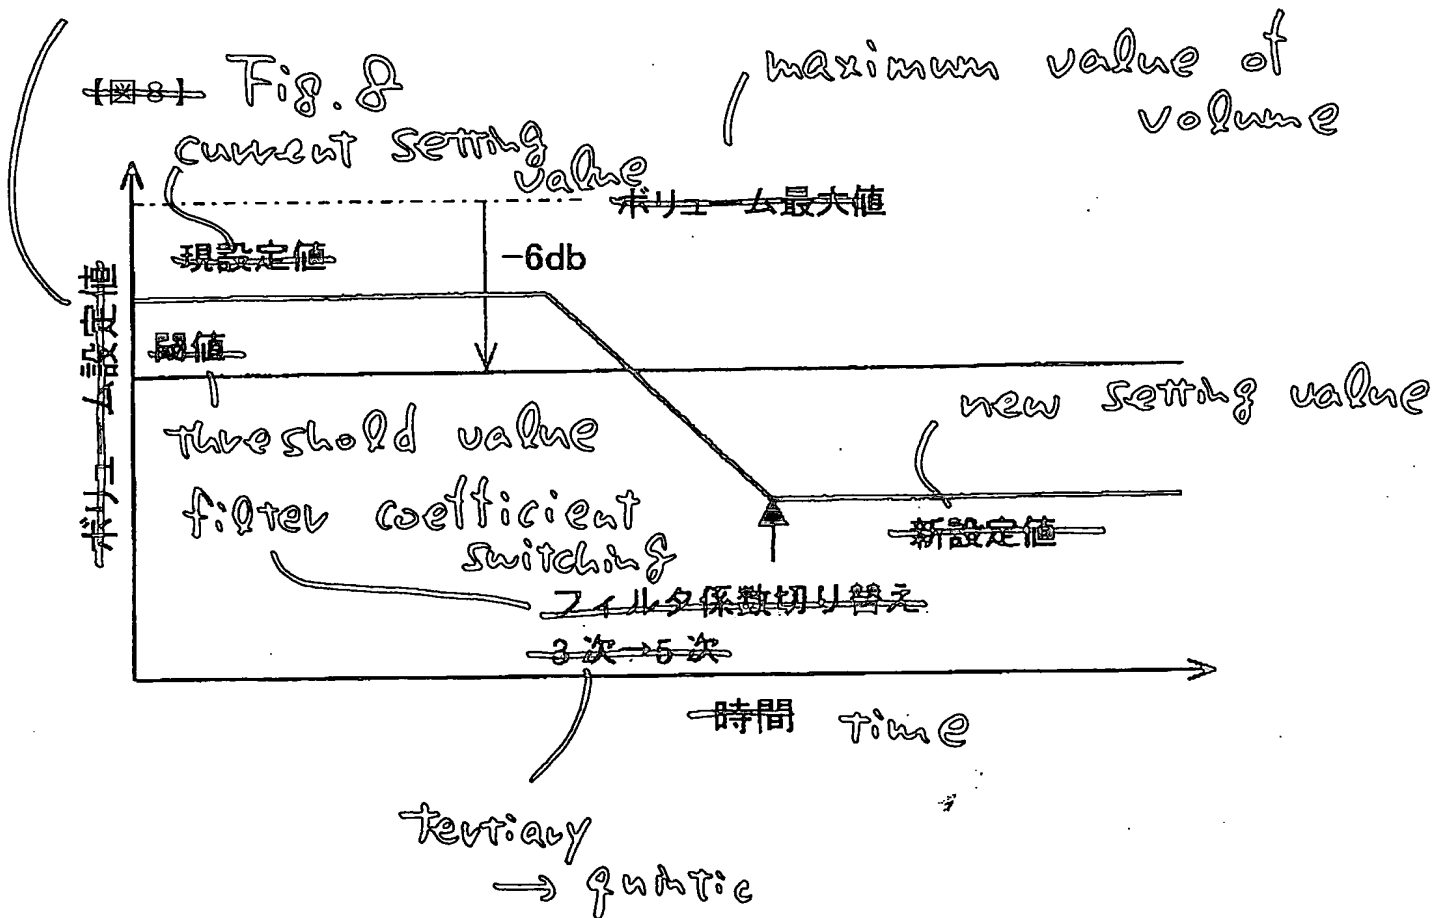 【図8】 Fig. 8
maximum value of
volume
current setting
value
ボリューム最大値
現設定値
-6db
ボリューム設定値
閾値
threshold value
new setting value
filter coefficient
switching
新設定値
フィルタ係数切り替え
3次→5次
時間 time
tertiary
→ quintic